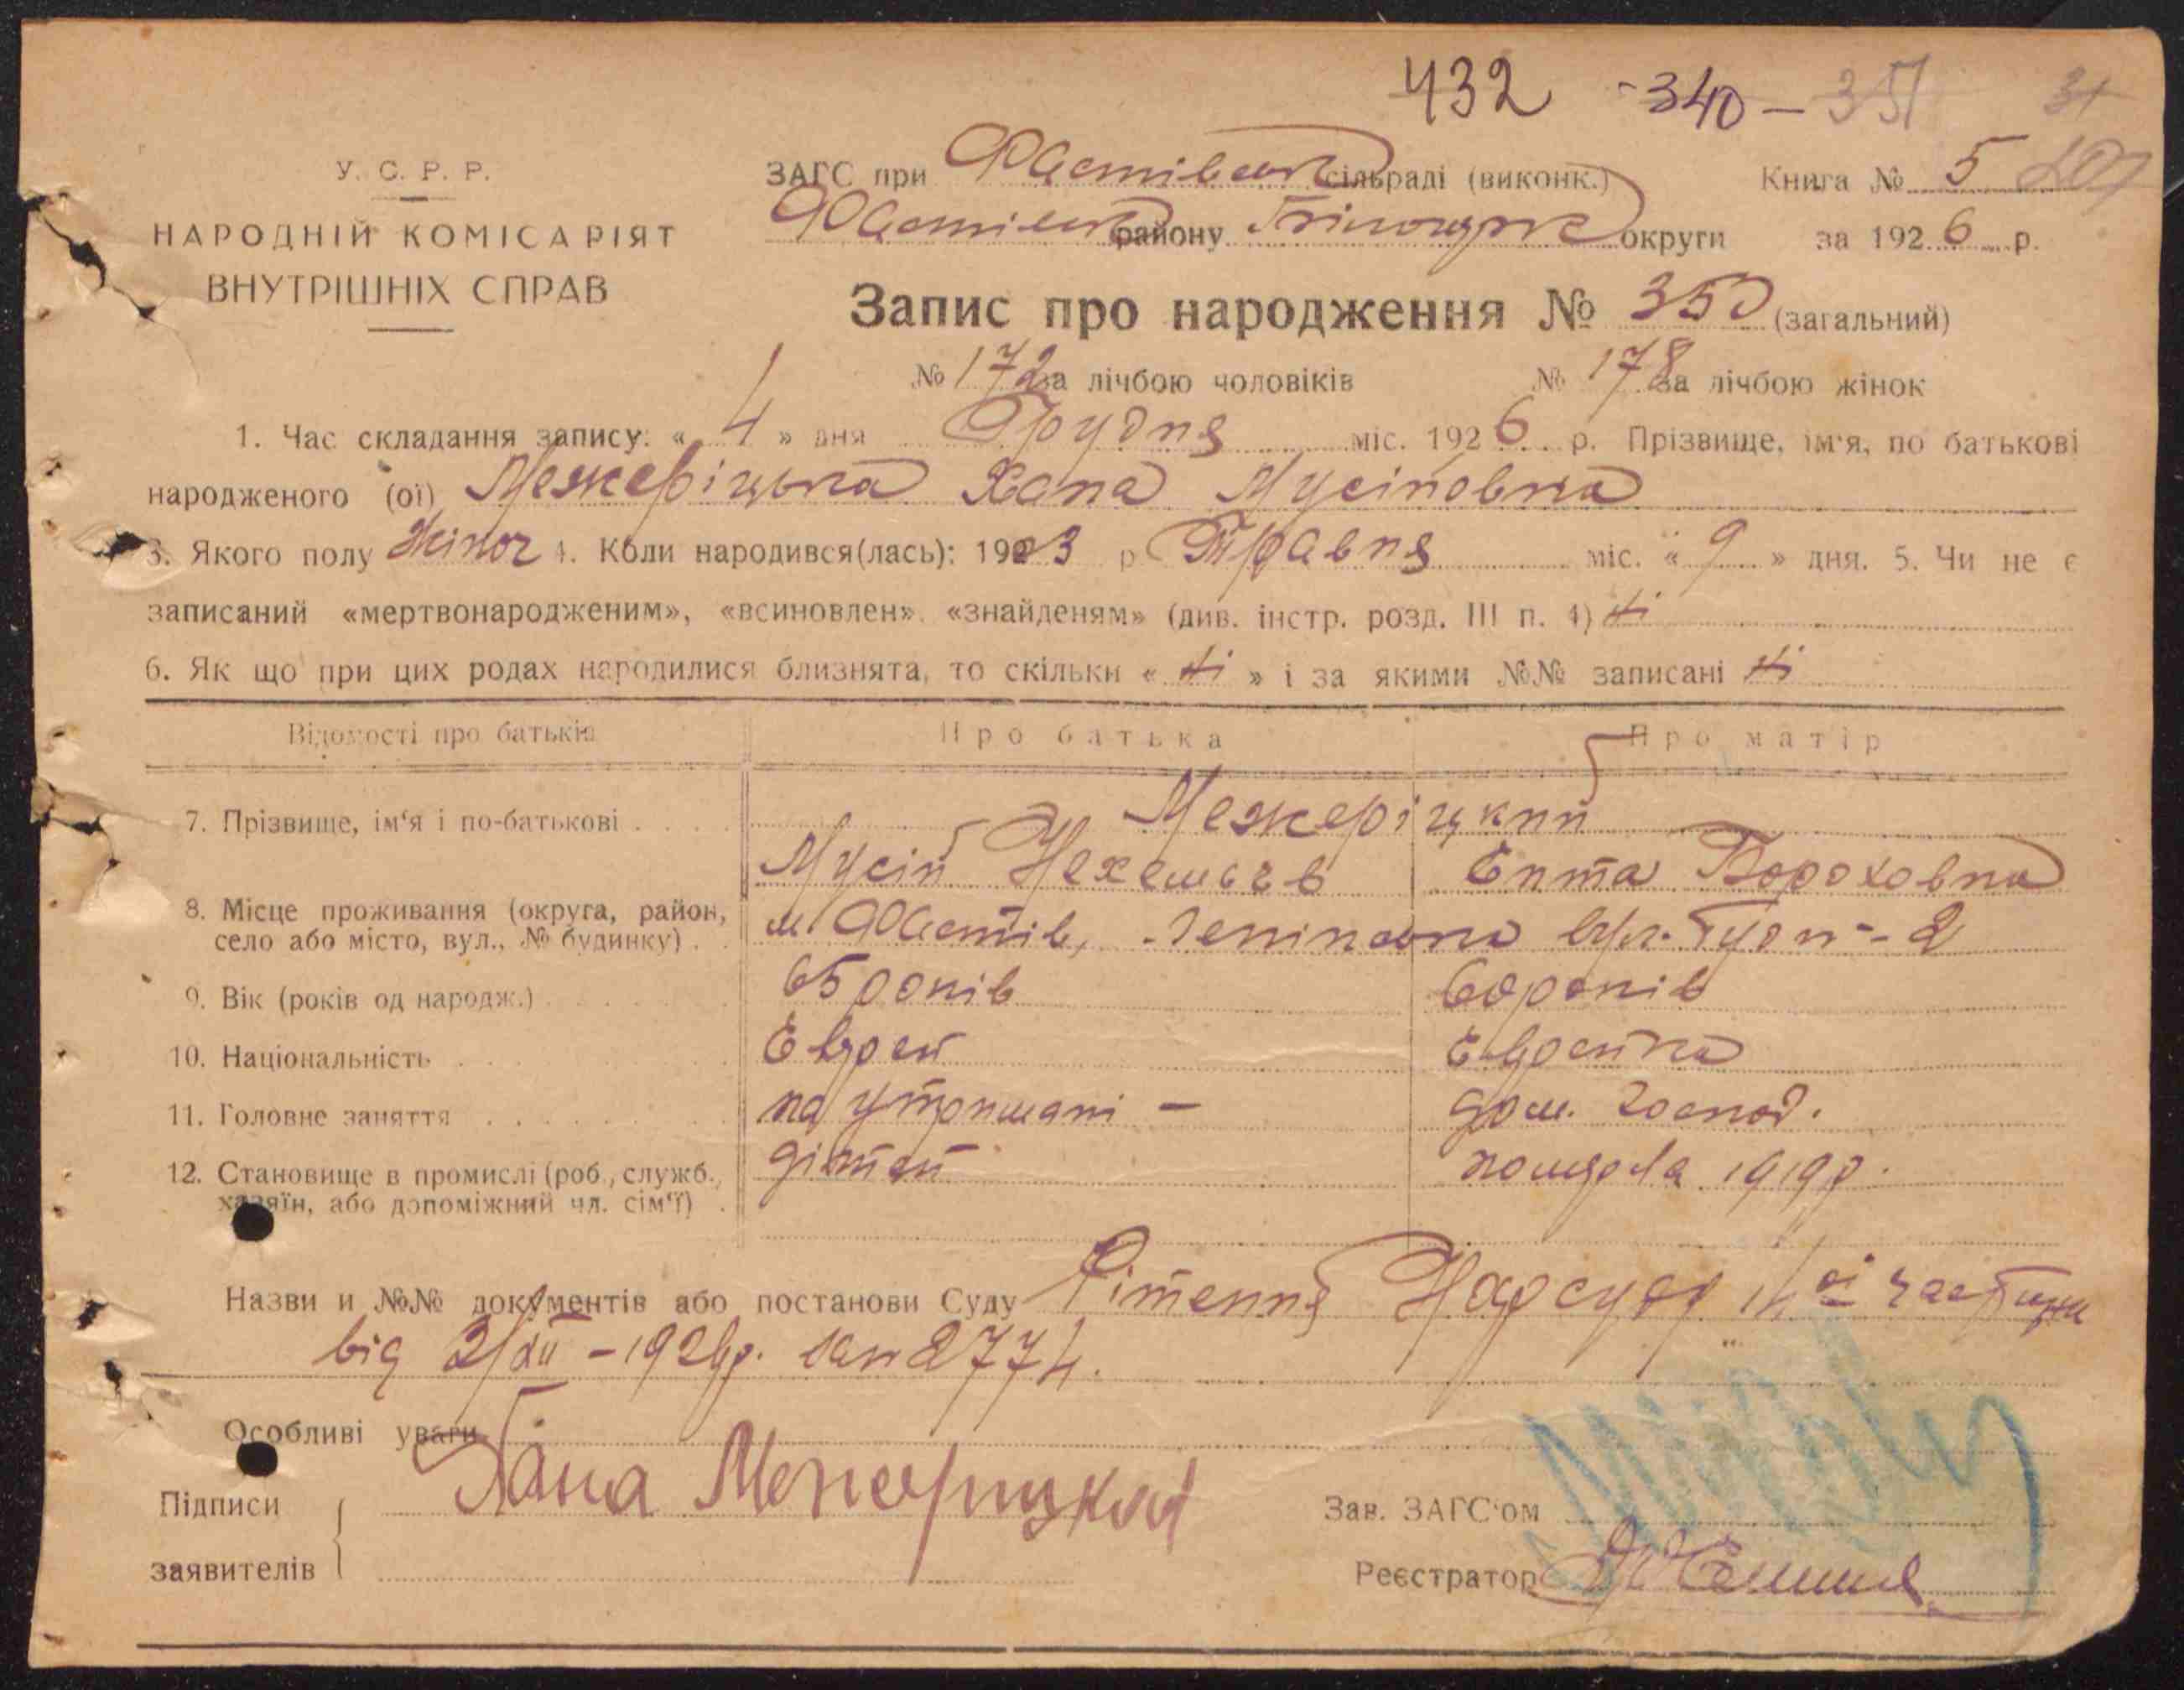 432 - 340 - 351 31
У. С. Р. Р.
НАРОДНІЙ КОМІСАРІЯТ
ВНУТРІШНІХ СПРАВ
ЗАГС при Фастівськ сільраді (виконк.) Книга № 5
Фастівськ району Білоцерк округи за 1926 р.
Запис про народження № 350 (загальний)
№ 172 за лічбою чоловіків № 178 за лічбою жінок
1. Час складання запису: « 4 » дня Грудня міс. 1926 р. Прізвище, ім'я, по батькові
народженого (ої) Межеріцька Хана Мусіповна
3. Якого полу жіноч 4. Коли народився(лась): 1903 р Травня міс. « 9 » дня. 5. Чи не є
записаний «мертвонародженим», «всиновлен». «знайденям» (див. інстр. розд. III п. 4) ні
6. Як що при цих родах народилися близнята, то скільки « ні » і за якими №№ записані ні
Відомості про батьків Про батька Про матір
7. Прізвище, ім'я і по-батькові Межеріцкий
Мусій Єнта Бороховна
8. Місце проживання (округа, район,
село або місто, вул., № будинку) м Фастів, вул. - 2
9. Вік (років од народж.) 65 років 60 років
10. Національність Еврей Еврейка
11. Головне заняття на утримані – дом. господ.
12. Становище в промислі (роб., служб.,
хазяїн, або допоміжний чл. сім'ї) дітей померла 1919 р.
Назви и №№ документів або постанови Суду Рішення Нарсуду
від 2/XII – 192 р. 2774.
Особливі уваги
Підписи
заявителів
Зав. ЗАГС'ом
Реєстратор